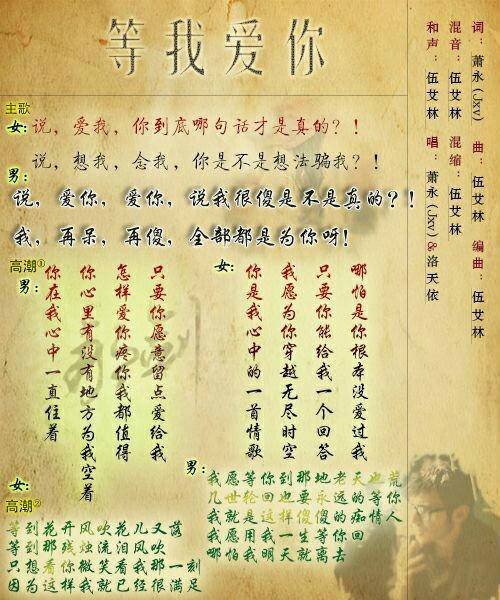 等我爱你
词：萧永(Jxv) 曲：伍艾林 编曲：伍艾林
混音：伍艾林 混缩：伍艾林
和声：伍艾林 唱：萧永(Jxv)&洛天依
主歌
女：说，爱我，你到底哪句话才是真的？！
说，想我，念我，你是不是想法骗我？！
男：
说，爱你，爱你，说我很傻是不是真的？！
我，再呆，再傻，全部都是为你呀！
高潮①
男：
只要你愿意留点爱给我
怎样爱你疼你我都值得
你心里有没有地方为我空着
你在我心中一直住着
女：
哪怕是你根本没爱过我
只要你能给我一个回答
我愿为你穿越无尽时空
你是我心中的一首情歌
男：
我愿等你到那地老天也荒
几世轮回也要永远的等你
我就是这样傻傻的痴情人
我愿用我一生等你回
哪怕我明天就离去
女：
高潮②
等到花开风吹花儿又落
等到那残烛流泪风吹
只想看你微笑看那一刻
因为这样我就已经很满足